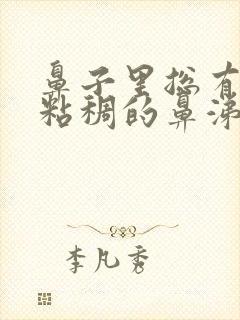 鼻子里总有
粘稠的鼻涕
李凡秀